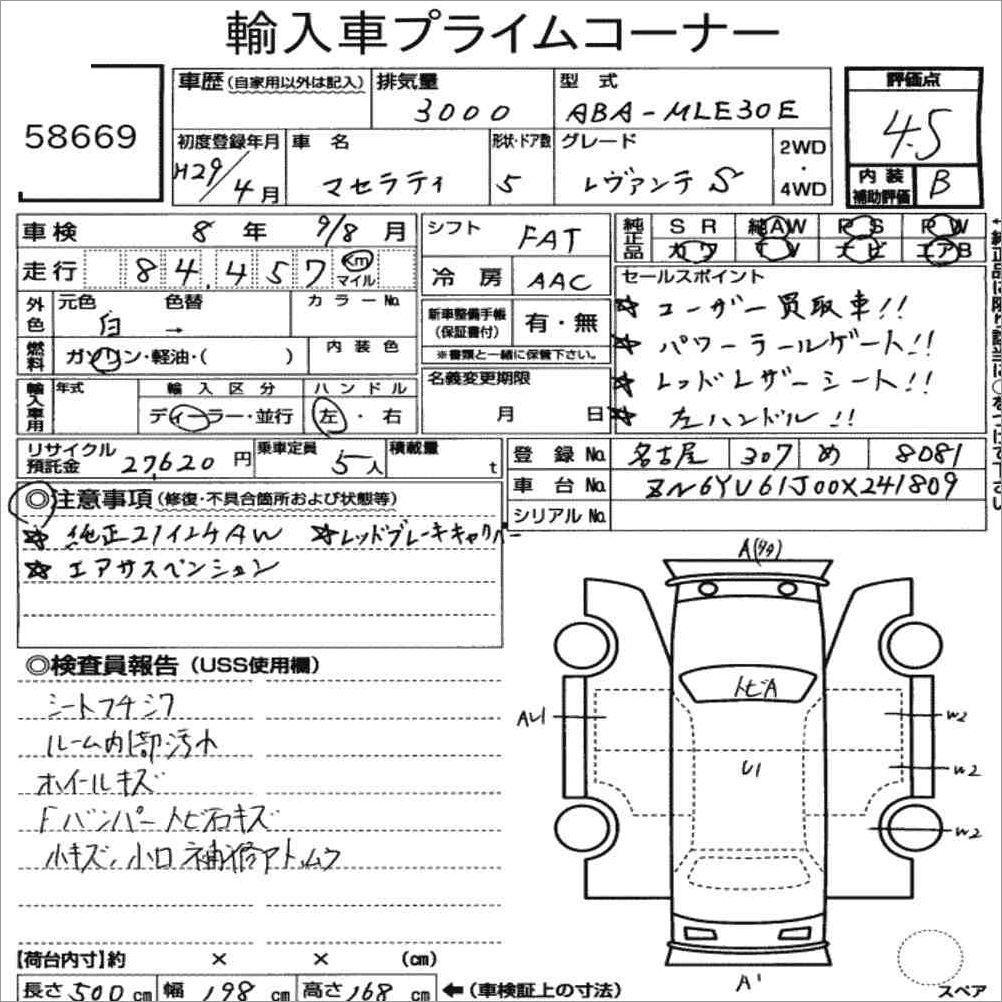 輸入車プライムコーナー
58669
車歴(自家用以外は記入) 排気量 3000 型式 ABA-MLE30E
評価点 4.5
初度登録年月 H29/4月 車名 マセラティ 形状・ドア数 5 グレード レヴァンテ S 2WD・4WD
内装補助評価 B
車検 8年 9/8月
走行 84,457 Km マイル
外色 元色 白 色替 → カラーNo.
燃料 ガソリン・軽油・( ) 内装色
輸入車用 年式 輸入区分 ディーラー・並行 ハンドル 左・右
シフト FAT
冷房 AAC
新車整備手帳(保証書付) 有・無
※書類と一緒に保管下さい。
名義変更期限 月 日
純正品 SR 純AW PS PW
カワ TV ナビ エアB
セールスポイント
☆ ユーザー買取車!!
☆ パワーテールゲート!!
☆ レッドレザーシート!!
☆ 左ハンドル!!
リサイクル預託金 27620円 乗車定員 5人 積載量 t
登録No. 名古屋 307 め 8081
車台No. ZN6YU61J00X241809
シリアルNo.
◎注意事項(修復・不具合箇所および状態等)
☆ 純正21インチAW ☆レッドブレーキキャリパー
☆ エアサスペンション
◎検査員報告(USS使用欄)
シートフチシワ
ルーム内部汚れ
ホイールキズ
Fバンパートビ石キズ
小キズ、小凹 補修アト、ムラ
A(タタ)
トビA
AU1
U1
W2
W2
W2
A'
スペア
【荷台内寸】約 × × (cm)
長さ 500 cm 幅 198 cm 高さ 168 cm ←(車検証上の寸法)